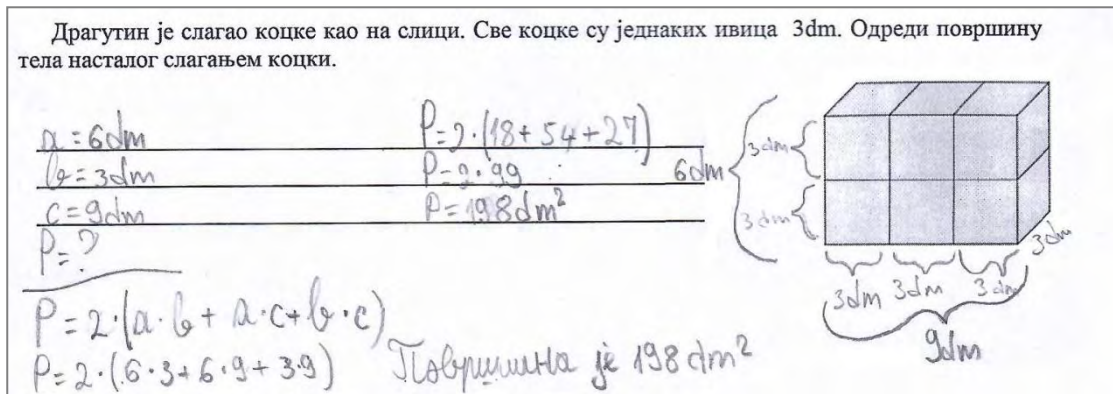 Драгутин је слагао коцке као на слици. Све коцке су једнаких ивица 3dm. Одреди површину
тела насталог слагањем коцки.
a = 6dm
b = 3dm
c = 9dm
P = ?
P = 2·(a·b + a·c + b·c)
P = 2·(6·3 + 6·9 + 3·9)
P = 2·(18 + 54 + 27)
P = 2·99
P = 198 dm²
Површина је 198 dm²
6dm
3dm
3dm
3dm
3dm 3dm 3dm
9dm